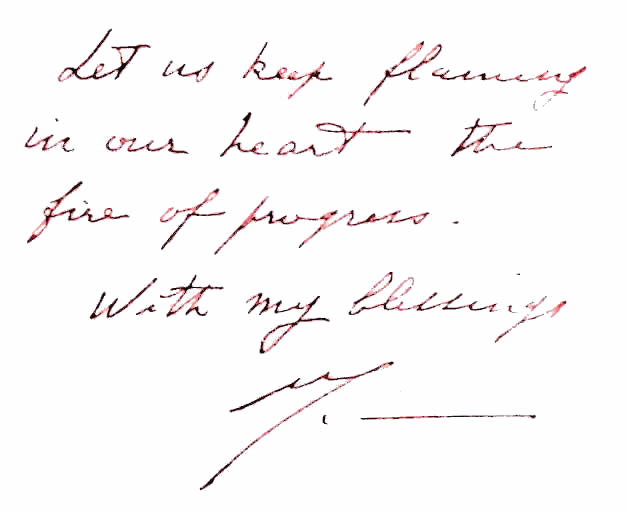 Let us keep flaming
in our heart the
fire of progress.
With my blessings